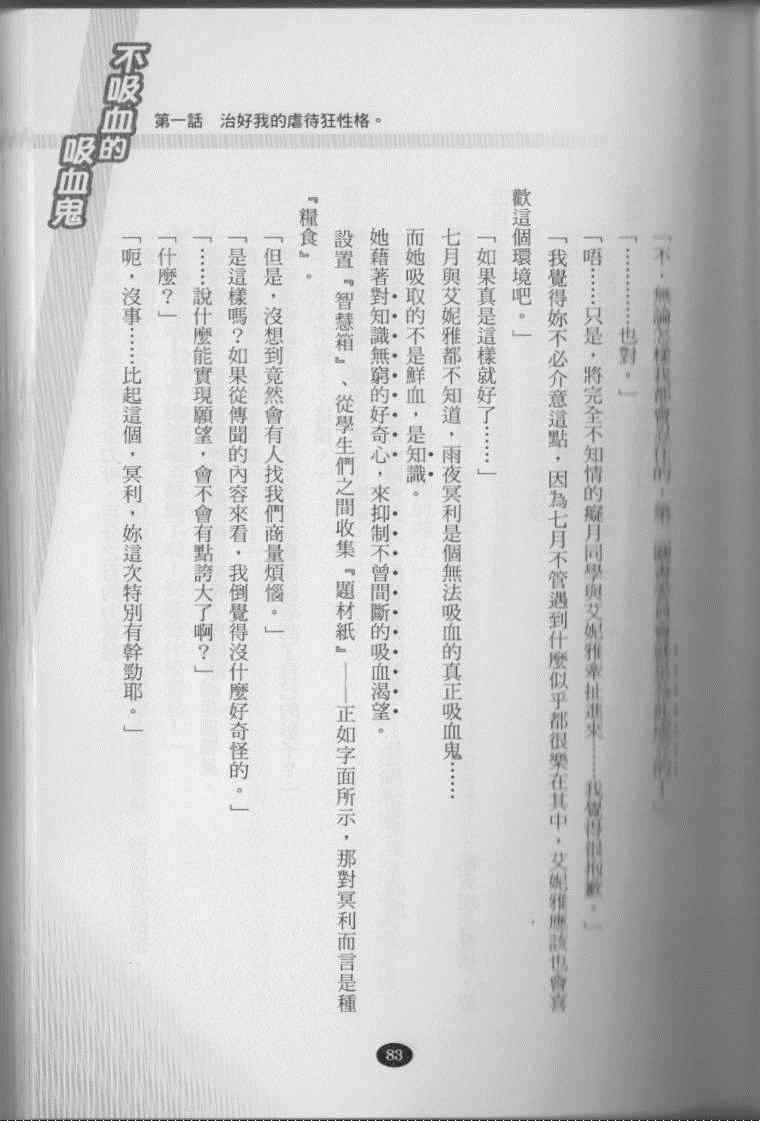 不吸血的
吸血鬼
第一話　治好我的虐待狂性格。
「不，無論怎樣我都會
「…………也對。」
「唔……只是，將完全不知情的癡月同學與艾妮雅牽扯進來……我覺得很抱歉。」
「我覺得妳不必介意這點，因為七月不管遇到什麼似乎都很樂在其中，艾妮雅應該也會喜
歡這個環境吧。」
「如果真是這樣就好了……」
七月與艾妮雅都不知道，雨夜冥利是個無法吸血的真正吸血鬼……
而她吸取的不是鮮血，是知識。
她藉著對知識無窮的好奇心，來抑制不曾間斷的吸血渴望。
設置『智慧箱』、從學生們之間收集『題材紙』——正如字面所示，那對冥利而言是種
『糧食』。
「但是，沒想到竟然會有人找我們商量煩惱。」
「是這樣嗎？如果從傳聞的內容來看，我倒覺得沒什麼好奇怪的。」
「……說什麼能實現願望，會不會有點誇大了啊？」
「什麼？」
「呃，沒事……比起這個，冥利，妳這次特別有幹勁耶。」
83